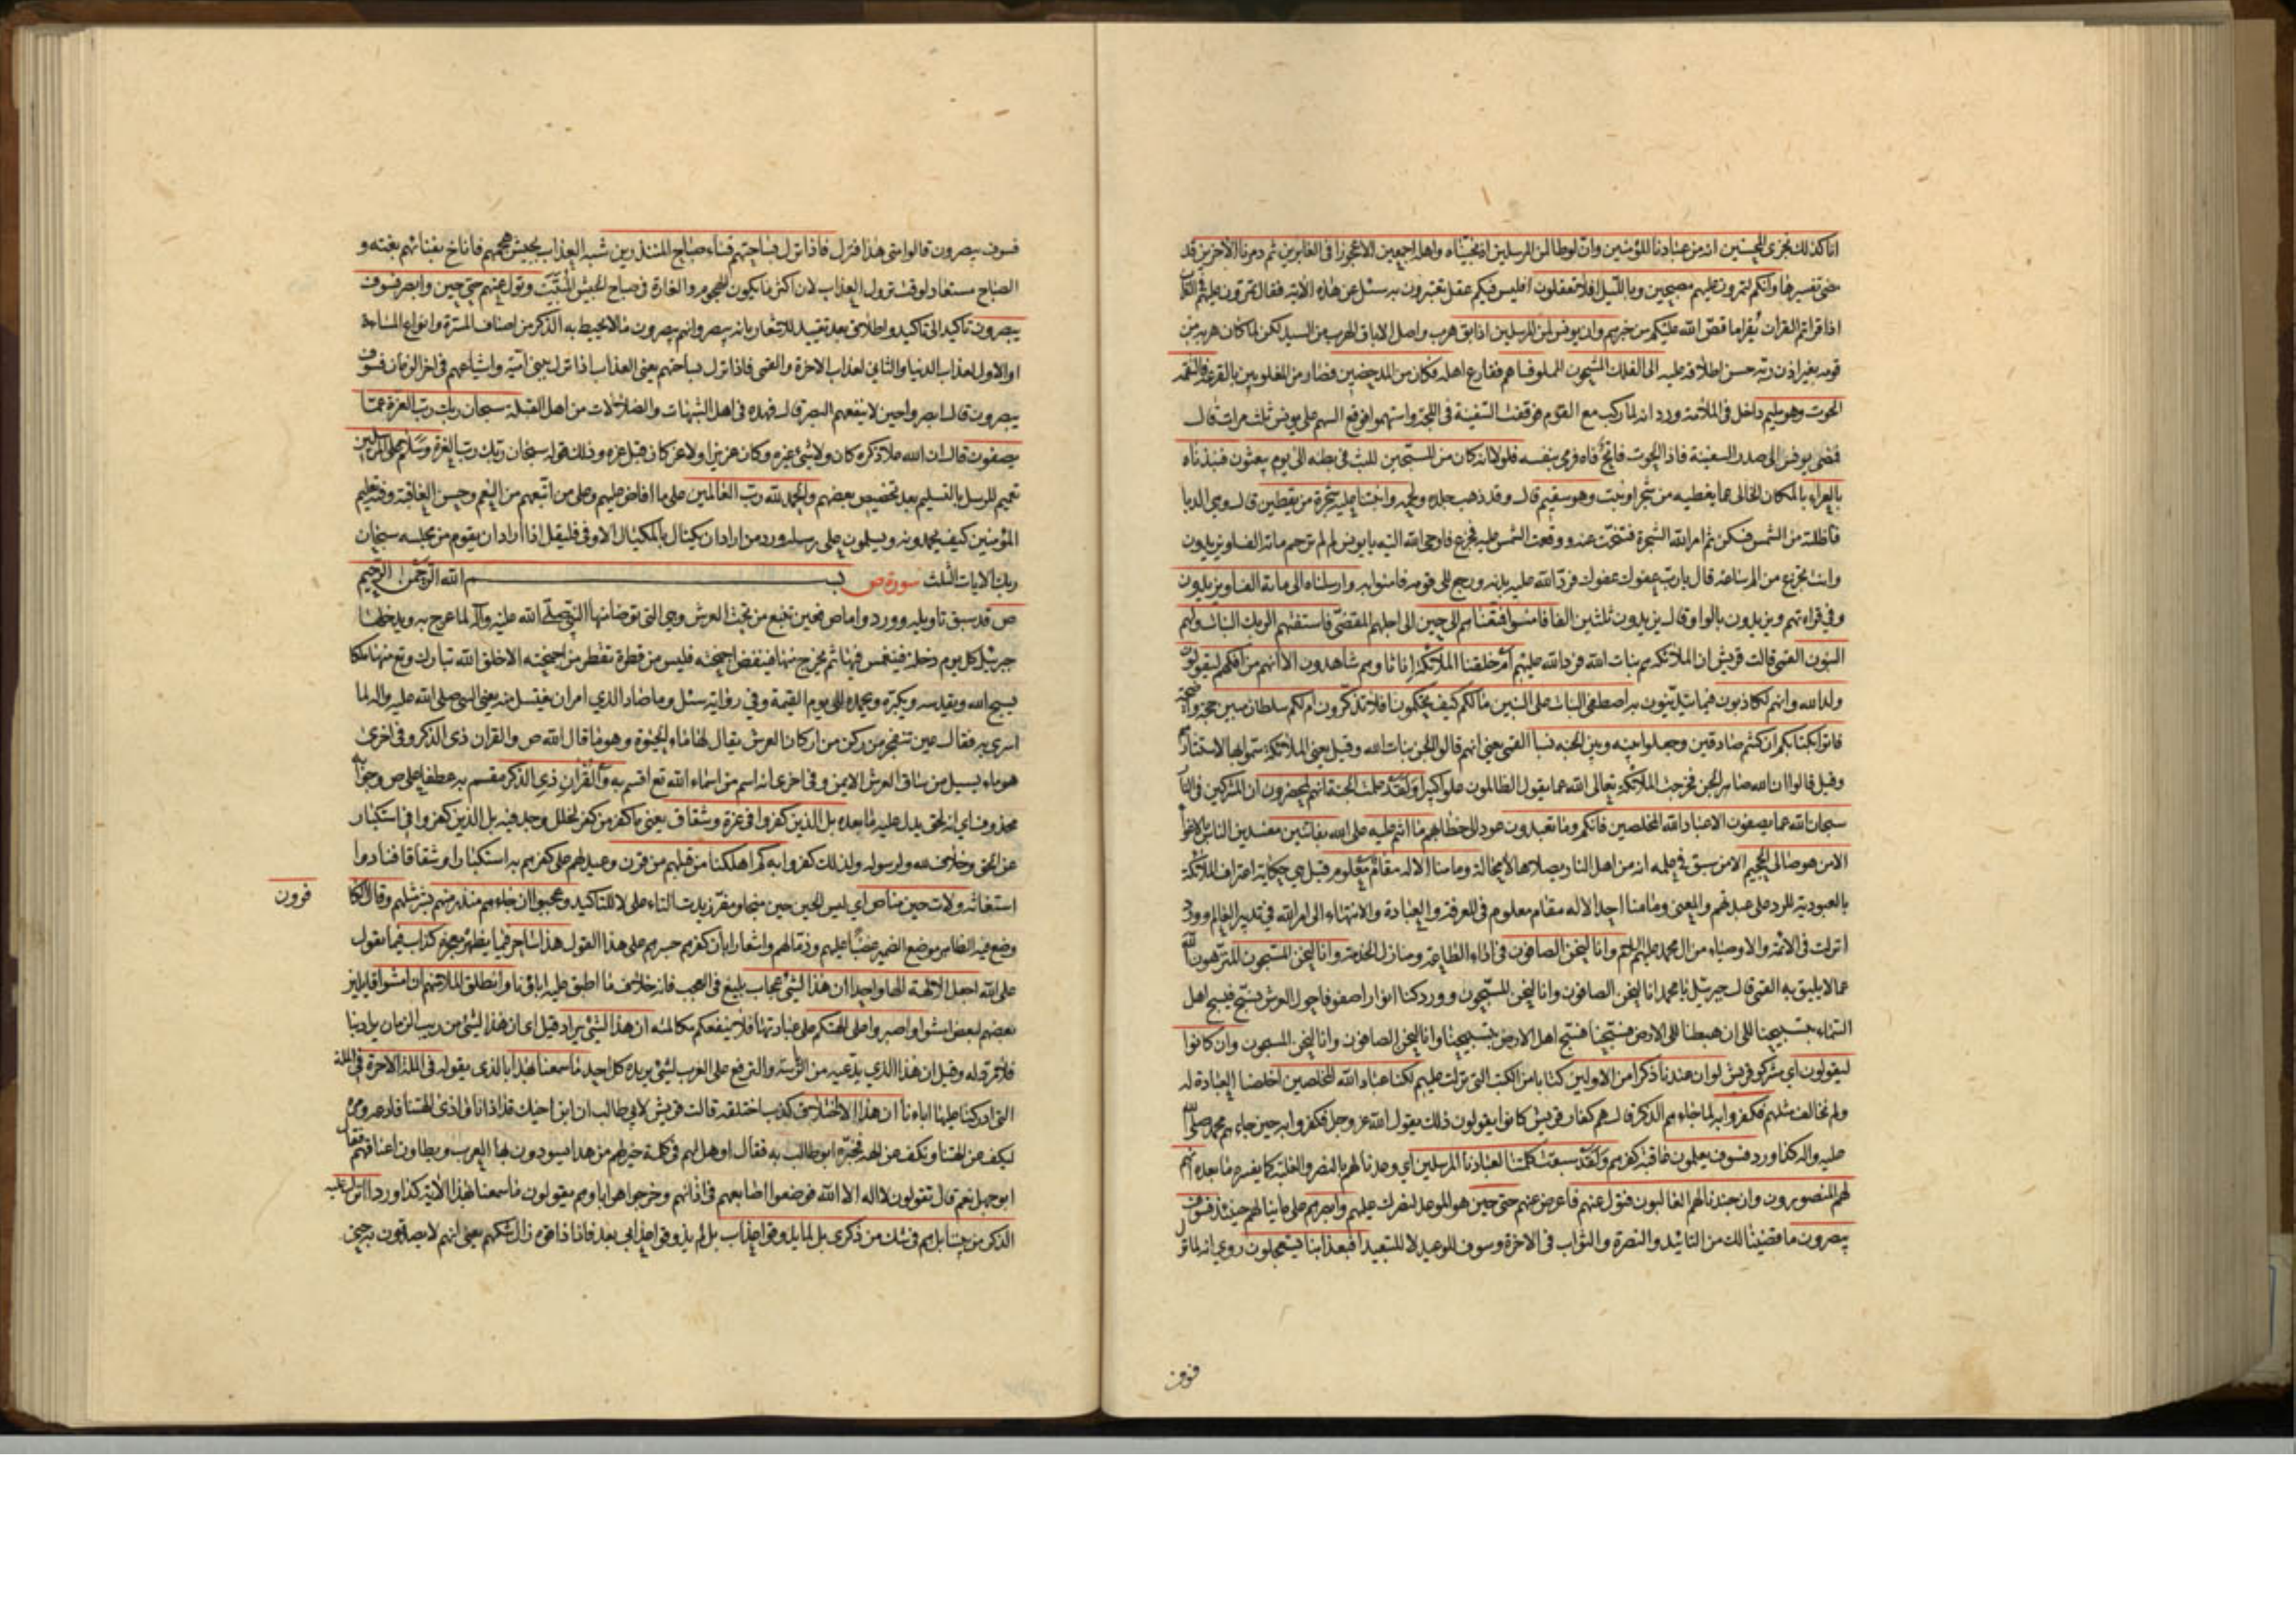 انا كذلك نجزى المحسنين انه من عبادنا المؤمنين وان لوطا لمن المرسلين اذ نجيناه واهله اجمعين الا عجوزا فى الغابرين ثم دمرنا الاخرين قد
مضى تفسيرها وانكم لتمرون عليهم مصبحين وبالليل افلا تعقلون افليس فيكم عقل تعتبرون به سئل عن هذه الاية فقال تمرون عليهم فى القران
اذا قراتم القران تقرا ما قص الله عليكم من خبرهم وان يونس لمن المرسلين اذ ابق هرب واصل الاباق الهرب من السيد لكن لما كان هربه من
قومه بغير اذن ربه حسن اطلاقه عليه الى الفلك المشحون المملو فساهم فقارع اهله فكان من المدحضين فصار من المغلوبين بالقرعة فالتقمه
الحوت وهو مليم داخل فى الملامة ورد انه لما ركب مع القوم فوقفت السفينة فى اللجة واستهموا فوقع السهم على يونس ثلث مرات قال
فمضى يونس الى صدر السفينة فاذا الحوت فاتح فاه فرمى بنفسه فلولا انه كان من المسبحين للبث فى بطنه الى يوم يبعثون فنبذناه
بالعراء بالمكان الخالى عما يغطيه من شجر او نبت وهو سقيم قال وقد ذهب جلده ولحمه وانبتنا عليه شجرة من يقطين قال وهى الدبا
فاظلته من الشمس فسكن ثم امر الله الشجرة فتنحت عنه ووقعت الشمس عليه فجزع فاوحى الله اليه يا يونس لم لم ترحم مائة الف او يزيدون
وانت تجزع من الم ساعة قال يا رب عفوك عفوك فرد الله عليه بدنه ورجع الى قومه فامنوا به وارسلناه الى مائة الف او يزيدون
وفى قراءتهم ويزيدون بالواو قال يزيدون ثلثين الفا فامنوا فمتعناهم الى حين الى اجلهم المقضى فاستفتهم الربك البنات ولهم
البنون القمى قالت قريش ان الملائكة هم بنات الله فرد الله عليهم ام خلقنا الملائكة اناثا وهم شاهدون الا انهم من افكهم ليقولون
ولد الله وانهم لكاذبون فيما يتدينون به اصطفى البنات على البنين ما لكم كيف تحكمون افلا تذكرون ام لكم سلطان مبين حجة واضحة
فاتوا بكتابكم ان كنتم صادقين وجعلوا بينه وبين الجنة نسبا القمى يعنى انهم قالوا الجن بنات الله وقيل يعنى الملائكة سموا بها لاستتارهم
وقيل قالوا ان الله صاهر الجن فخرجت الملائكة تعالى الله عما يقول الظالمون علوا كبيرا ولقد علمت الجنة انهم لمحضرون ان المشركين فى النار
سبحان الله عما يصفون الا عباد الله المخلصين فانكم وما تعبدون عود الى خطابهم ما انتم عليه على الله بفاتنين مفسدين الناس بالاغواء
الا من هو صالى الجحيم الا من سبق فى علمه انه من اهل النار يصلاها لا محالة وما منا الا له مقام معلوم قيل هى حكاية اعتراف الملائكة
بالعبودية للرد على عبدتهم والمعنى وما منا احد الا له مقام معلوم فى المعرفة والعبادة والانتهاء الى امر الله فى تدبير العالم وورد
انزلت فى الائمة والاوصياء من ال محمد عليهم السلام وانا لنحن الصافون فى اداء الطاعة ومنازل الخدمة وانا لنحن المسبحون المنزهون لله
عما لا يليق به القمى قال جبرئيل يا محمد انا لنحن الصافون وانا لنحن المسبحون وورد كنا انوارا صفوفا حول العرش نسبح فيسبح اهل
السماء بتسبيحنا الى ان هبطنا الى الارض فسبحنا فسبح اهل الارض بتسبيحنا وانا لنحن الصافون وانا لنحن المسبحون وان كانوا
ليقولون اى مشركو قريش لو ان عندنا ذكرا من الاولين كتابا من الكتب التى نزلت عليهم لكنا عباد الله المخلصين اخلصنا العبادة له
ولم نخالف مثلهم فكفروا به لما جاءهم الذكر قال هم كفار قريش كانوا يقولون ذلك يقول الله عز وجل فكفروا به حين جاءهم محمد صلى الله
عليه واله كذا ورد فسوف يعلمون عاقبة كفرهم ولقد سبقت كلمتنا لعبادنا المرسلين اى وعدنا لهم بالنصر والغلبة كما يفسره ما بعده انهم
لهم المنصورون وان جندنا لهم الغالبون فتول عنهم فاعرض عنهم حتى حين هو الموعد لنصرك عليهم وابصرهم على ما ينالهم حينئذ فسوف
يبصرون ما قضينا لك من التائيد والنصرة والثواب فى الاخرة وسوف للوعيد لا للتبعيد افبعذابنا يستعجلون روى انه لما نزل
فسوف يبصرون قالوا متى هذا فنزل فاذا نزل بساحتهم فساء صباح المنذرين شبه العذاب بجيش هجمهم فاناخ بفنائهم بغتة و
الصباح مستعار لوقت نزول العذاب لان اكثر ما يكون الهجوم والغارة فى صباح الجيش المبيت وتول عنهم حتى حين وابصر فسوف
يبصرون تاكيد الى تاكيد واطلاق بعد تقييد للاشعار بانه يبصر وانهم يبصرون ما لا يحيط به الذكر من اصناف المسرة وانواع المساءة
او الاول لعذاب الدنيا والثانى لعذاب الاخرة والقمى فاذا نزل بساحتهم يعنى العذاب اذا نزل ببنى امية واشياعهم فى اخر الزمان فسوف
يبصرون قال ابصروا حين لا ينفعهم البصر قال فهذه فى اهل الشبهات والضلالات من اهل القبلة سبحان ربك رب العزة عما
يصفون قال ان الله علا ذكره كان ولا شىء غيره وكان عزيزا ولا عز كان قبل عزه وذلك قوله سبحان ربك رب العزة وسلام على المرسلين
تعميم للرسل بالتسليم بعد تخصيص بعضهم والحمد لله رب العالمين على ما افاض عليهم وعلى من اتبعهم من النعم وحسن العاقبة وفيه تعليم
المؤمنين كيف يحمدونه ويسلمون على رسله ورد من اراد ان يكتال بالمكيال الاوفى فليقل اذا اراد ان يقوم من مجلسه سبحان
ربك الايات الثلث سورة ص بسم الله الرحمن الرحيم
ص قد سبق تاويله وورد واما ص فعين تنبع من تحت العرش وهى التى توضا منها النبى صلى الله عليه واله لما عرج به ويدخلها
جبرئيل كل يوم دخلة فينغمس فيها ثم يخرج منها فينفض اجنحته فليس من قطرة تقطر من اجنحته الا خلق الله تبارك وتع منها ملكا
يسبح الله ويقدسه ويكبره ويحمده الى يوم القيمة وفى رواية سئل وما صاد الذى امر ان يغتسل منه يعنى النبى صلى الله عليه واله لما
اسرى به فقال عين تنفجر من ركن من اركان العرش يقال لها ماء الحيوة وهو ما قال الله ص والقران ذى الذكر وفى اخرى
هو ماء يسيل من ساق العرش الايمن وفى اخرى انه اسم من اسماء الله تع اقسم به والقران ذى الذكر مقسم به عطفا على ص وجوابه
محذوف اى انه لحق يدل عليه ما بعده بل الذين كفروا فى عزة وشقاق يعنى ما كفر من كفر لخلل وجد فيه بل الذين كفروا فى استكبار
عن الحق وخلاف لله ولرسوله ولذلك كفروا به كم اهلكنا من قبلهم من قرن وعيد لهم على كفرهم به استكبارا وشقاقا فنادوا
استغاثة ولات حين مناص اى ليس الحين حين منجا ومفر زيدت التاء على لا للتاكيد وعجبوا ان جاءهم منذر منهم بشر مثلهم وقال الكا
فرون
وضع فيه الظاهر موضع الضمير غضبا عليهم وذما لهم واشعارا بان كفرهم جسرهم على هذا القول هذا ساحر فيما يظهره معجزة كذاب فيما يقول
على الله اجعل الالهة الها واحدا ان هذا لشىء عجاب بليغ فى العجب فانه خلاف ما اطبق عليه اباؤنا وانطلق الملا منهم ان امشوا قايلين
بعضهم لبعض امشوا واصبروا على الهتكم على عبادتها فلا ينفعكم مكالمته ان هذا لشىء يراد قيل اى ان هذا لشىء من ريب الزمان يراد بنا
فلا مرد له وقيل ان هذا الذى يدعيه من الرياسة والترفع على العرب لشىء يريده كل احد ما سمعنا بهذا بالذى يقوله فى الملة الاخرة فى الملة
التى ادركنا عليها اباءنا ان هذا الا اختلاق كذب اختلقه قالت قريش لابى طالب ان ابن اخيك قد اذانا واذى الهتنا فادعه ومره
ليكف عن الهتنا ونكف عن الهه فخبره ابو طالب به فقال او هل لهم فى كلمة خير لهم من هذا يسودون بها العرب ويطاون اعناقهم فقال
ابو جهل نعم قال تقولون لا اله الا الله فوضعوا اصابعهم فى اذانهم وخرجوا هرابا وهم يقولون ما سمعنا بهذا الاية كذا ورد ءانزل عليه
الذكر من بيننا بل هم فى شك من ذكرى بل لما يذوقوا عذاب بل لم يذوقوا عذابى بعد فاذا ذاقوه زال شكهم يعنى انهم لا يصدقون به حتى